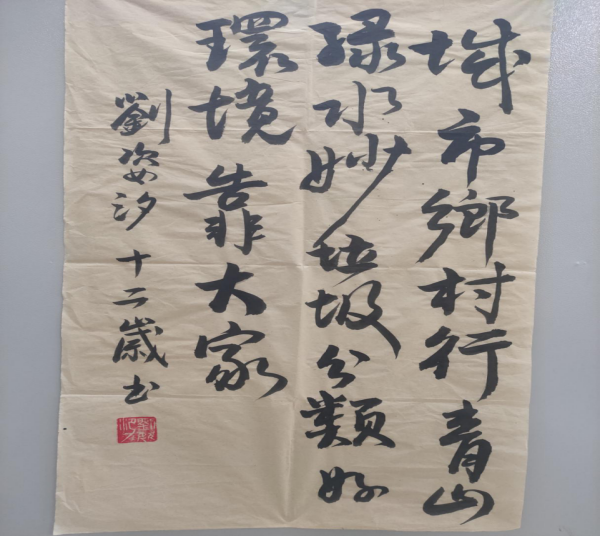 城市鄉村行青山
緑水妙垃圾分類好
環境靠大家
劉姿汐十二歲书